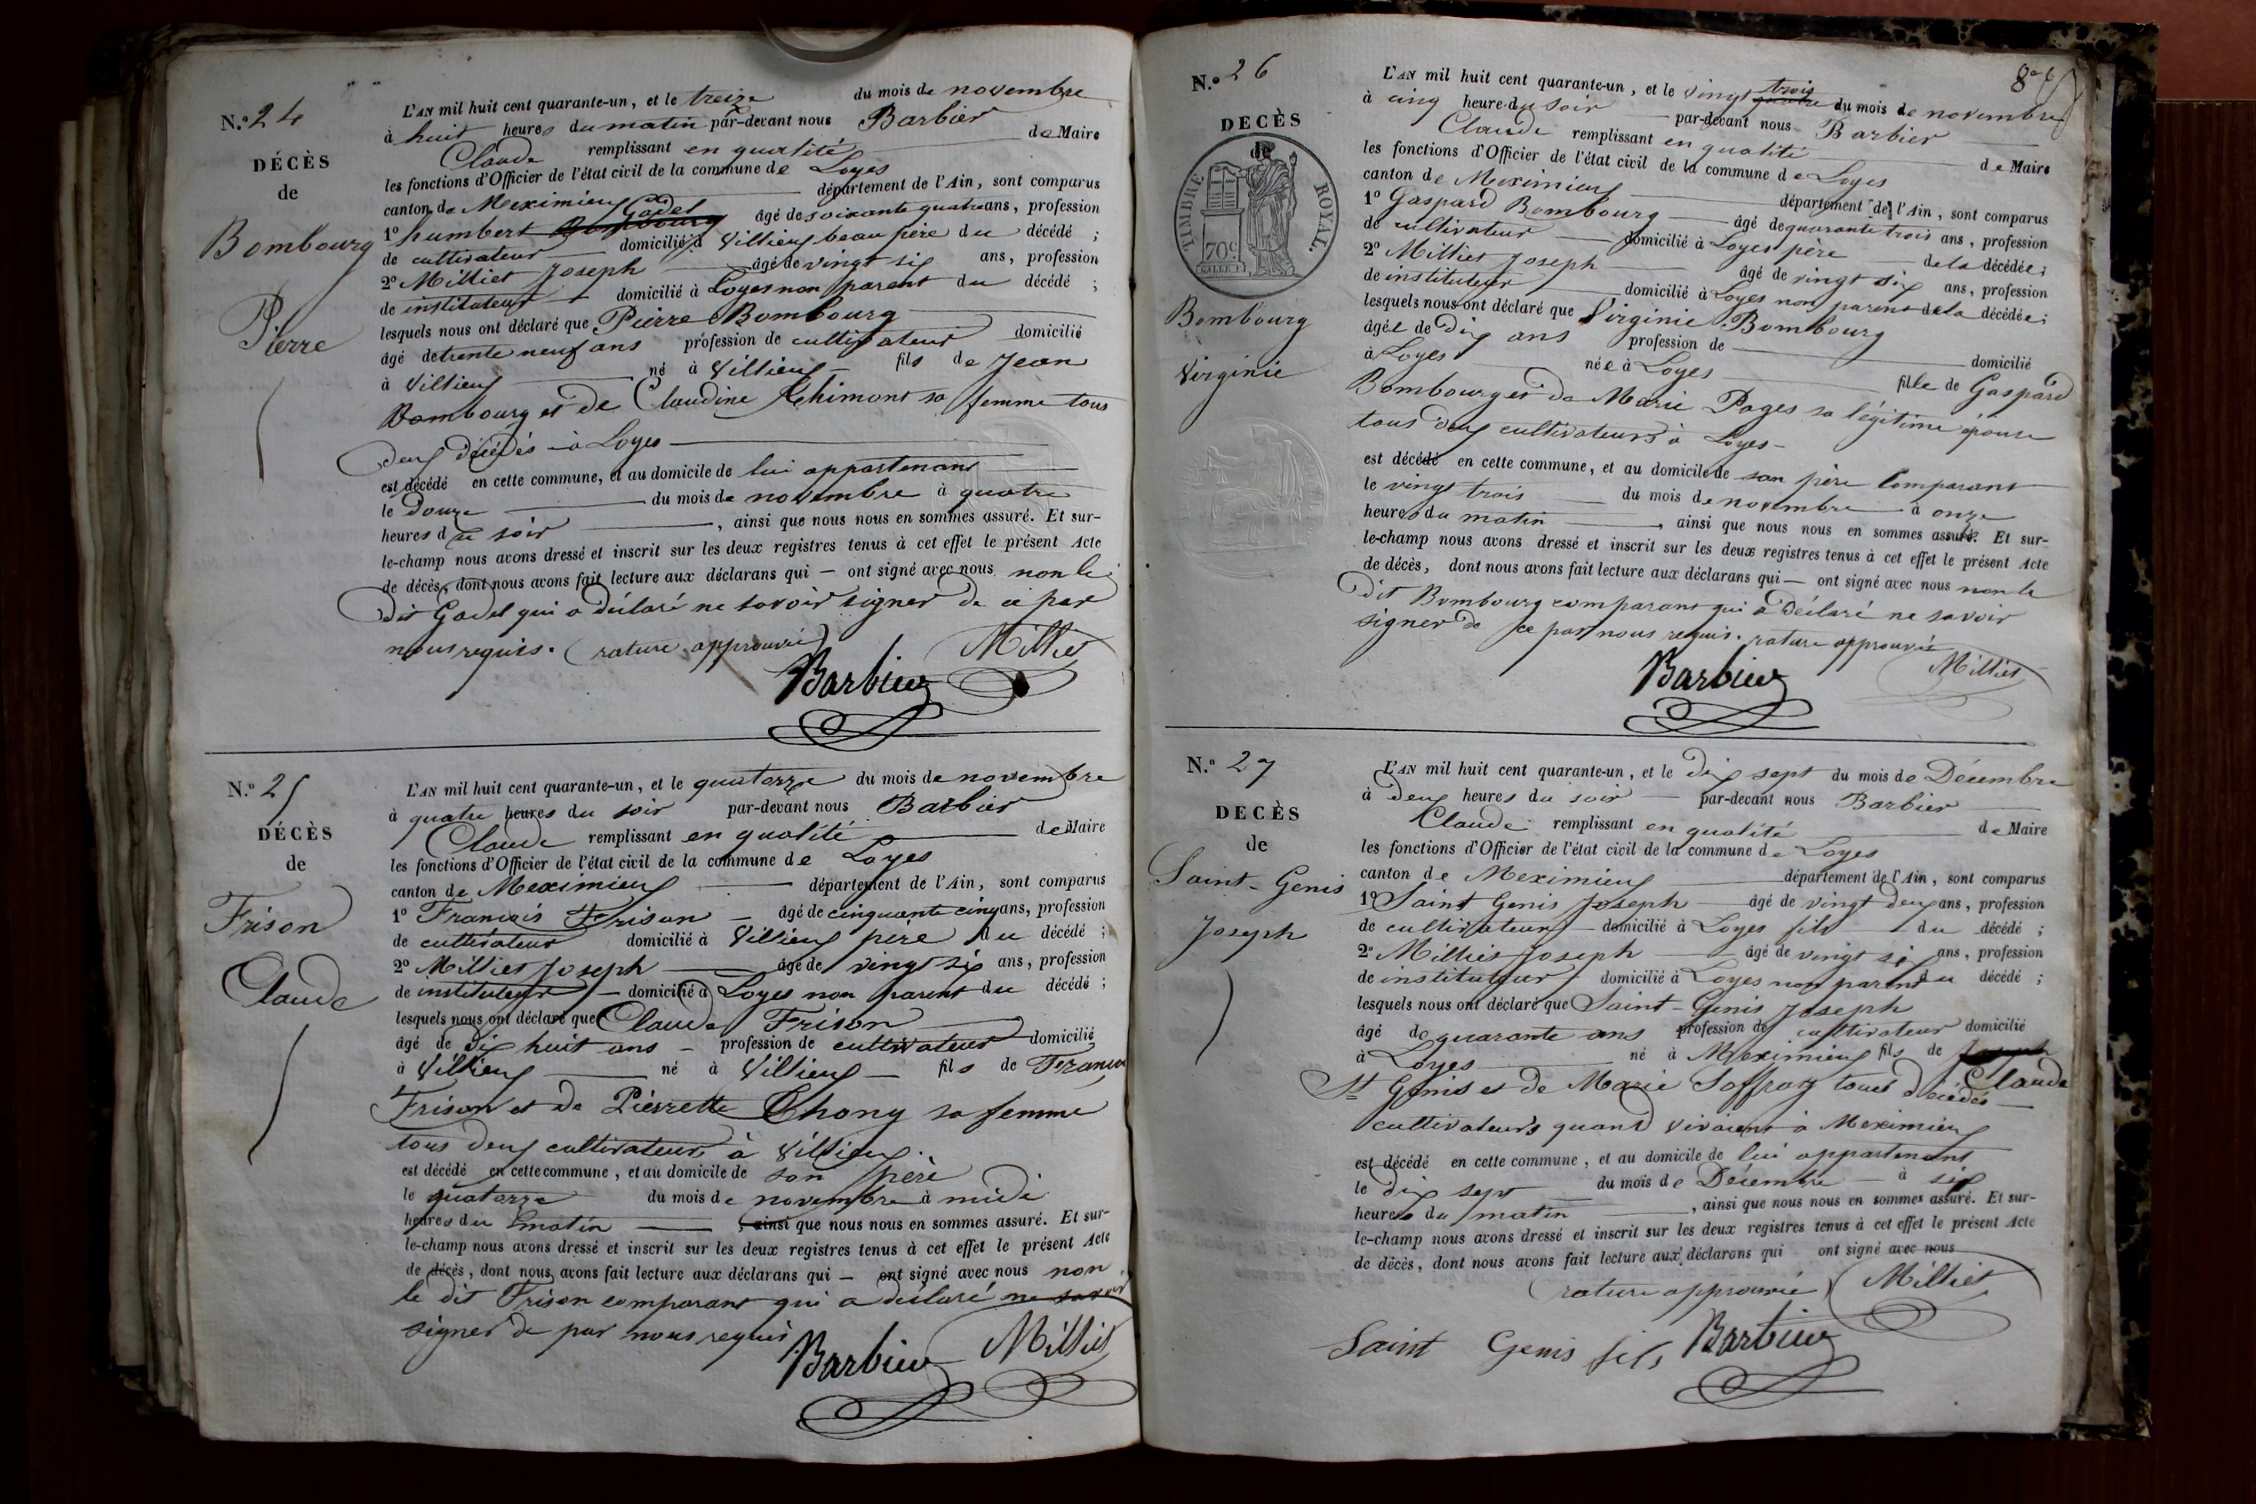 N.º 24
DÉCÈS
de
Bombourg
Pierre
L'AN mil huit cent quarante-un, et le treize du mois de novembre
à huit heures du matin par-devant nous Barbier
Claude remplissant en qualité de Maire
les fonctions d'Officier de l'état civil de la commune de Loyes
canton de Meximieux département de l'Ain, sont comparus
1º humbert Godet âgé de soixante quatre ans, profession
de cultivateur domicilié à Villieux beau père du décédé ;
2º Milliet Joseph âgé de vingt six ans, profession
de instituteur domicilié à Loyes non parent du décédé ;
lesquels nous ont déclaré que Pierre Bombourg
âgé de trente neuf ans profession de cultivateur domicilié
à Villieux né à Villieux fils de Jean
Bombourg et de Claudine Chimont sa femme tous
deux décédés à Loyes
est décédé en cette commune, et au domicile de lui appartenant
le douze du mois de novembre à quatre
heures du soir , ainsi que nous nous en sommes assuré. Et sur-
le-champ nous avons dressé et inscrit sur les deux registres tenus à cet effet le présent Acte
de décès, dont nous avons fait lecture aux déclarans qui — ont signé avec nous non le
dit Godet qui a déclaré ne savoir signer de ce par
nous requis. (rature approuvée)
Barbier Milliet
N.º 25
DÉCÈS
de
Frison
Claude
L'AN mil huit cent quarante-un, et le quatorze du mois de novembre
à quatre heures du soir par-devant nous Barbier
Claude remplissant en qualité de Maire
les fonctions d'Officier de l'état civil de la commune de Loyes
canton de Meximieux département de l'Ain, sont comparus
1º Francois Frison âgé de cinquante cinq ans, profession
de cultivateur domicilié à Villieux père du décédé ;
2º Milliet Joseph âgé de vingt six ans, profession
de instituteur domicilié à Loyes non parent du décédé ;
lesquels nous ont déclaré que Claude Frison
âgé de dix huit ans profession de cultivateur domicilié
à Villieux né à Villieux fils de Francois
Frison et de Pierrette Chony sa femme
tous deux cultivateurs à Villieux.
est décédé en cette commune, et au domicile de son père
le quatorze du mois de novembre à midi
heures du matin , ainsi que nous nous en sommes assuré. Et sur-
le-champ nous avons dressé et inscrit sur les deux registres tenus à cet effet le présent Acte
de décès, dont nous avons fait lecture aux déclarans qui — ont signé avec nous non
le dit Frison comparant qui a déclaré ne savoir
signer de par nous requis
Barbier Milliet
N.º 26
DÉCÈS
de
TIMBRE ROYAL.
70c.
Bombourg
Virginie
L'AN mil huit cent quarante-un, et le vingt trois quatre du mois de novembre
à cinq heure du soir par-devant nous Barbier
Claude remplissant en qualité de Maire
les fonctions d'Officier de l'état civil de la commune de Loyes
canton de Meximieux département de l'Ain, sont comparus
1º Gaspard Bombourg âgé de quarante trois ans, profession
de cultivateur domicilié à Loyes père de la décédée ;
2º Milliet Joseph âgé de vingt six ans, profession
de instituteur domicilié à Loyes non parent de la décédée ;
lesquels nous ont déclaré que Virginie Bombourg
âgée de dix ans profession de domicilié
à Loyes née à Loyes fille de Gaspard
Bombourg et de Marie Pages sa légitime épouse
tous deux cultivateurs à Loyes
est décédé en cette commune, et au domicile de son père Comparant
le vingt trois du mois de novembre à onze
heures du matin , ainsi que nous nous en sommes assuré. Et sur-
le-champ nous avons dressé et inscrit sur les deux registres tenus à cet effet le présent Acte
de décès, dont nous avons fait lecture aux déclarans qui — ont signé avec nous non le
dit Bombourg comparant qui a déclaré ne savoir
signer de ce par nous requis. rature approuvée
Barbier Milliet
N.º 27
DÉCÈS
de
Saint-Genis
Joseph
L'AN mil huit cent quarante-un, et le dix sept du mois de Décembre
à deux heures du soir par-devant nous Barbier
Claude remplissant en qualité de Maire
les fonctions d'Officier de l'état civil de la commune de Loyes
canton de Meximieux département de l'Ain, sont comparus
1º Saint Genis Joseph âgé de vingt deux ans, profession
de cultivateur domicilié à Loyes fils du décédé ;
2º Milliet Joseph âgé de vingt six ans, profession
de instituteur domicilié à Loyes non parent du décédé ;
lesquels nous ont déclaré que Saint-Genis Joseph
âgé de quarante ans profession de cultivateur domicilié
à Loyes né à Meximieux fils de Joseph Claude
St Genis et de Marie Soffray tous décédés
cultivateurs quand vivaient à Meximieux
est décédé en cette commune, et au domicile de lui appartenant
le dix sept du mois de Décembre à six
heures du matin , ainsi que nous nous en sommes assuré. Et sur-
le-champ nous avons dressé et inscrit sur les deux registres tenus à cet effet le présent Acte
de décès, dont nous avons fait lecture aux déclarans qui ont signé avec nous
(rature approuvée) Milliet
Saint Genis fils Barbier